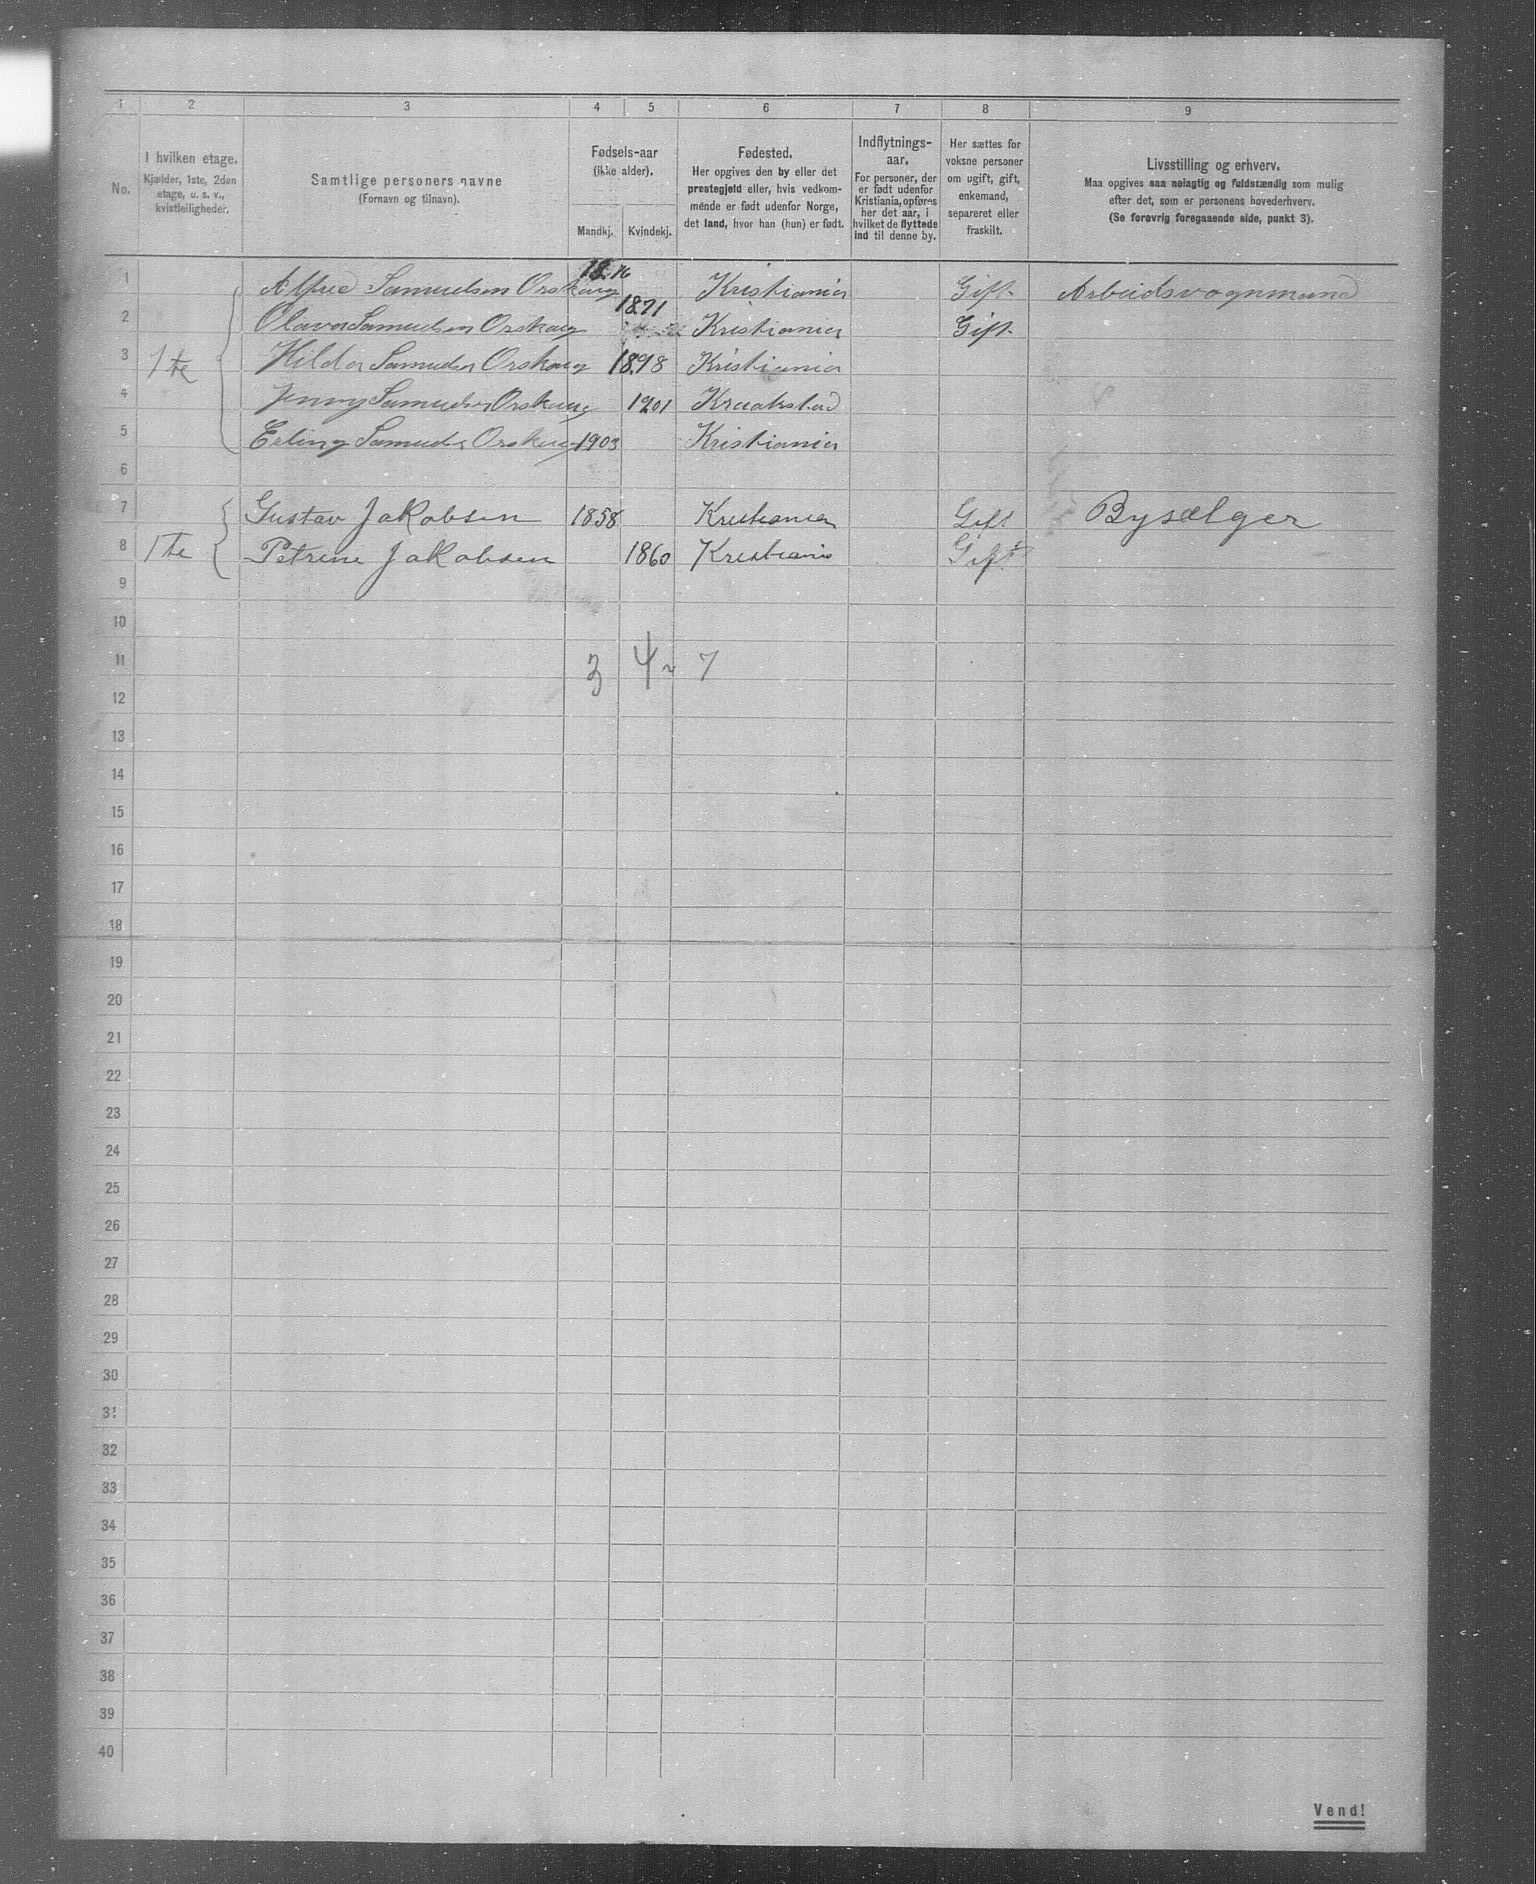 1 2 3 4 5 6 7 8 9
No.
I hvilken etage.
Kjælder, 1ste, 2den
etage, u. s. v.,
kvistleiligheder.
Samtlige personers navne
(Fornavn og tilnavn).
Fødsels-aar
(ikke alder).
Mandkj. Kvindekj.
Fødested.
Her opgives den by eller det
prestegjeld eller, hvis vedkom-
mende er født udenfor Norge,
det land, hvor han (hun) er født.
Indflytnings-
aar.
For personer, der
er født udenfor
Kristiania, opføres
her det aar, i
hvilket de flyttede
ind til denne by.
Her sættes for
voksne personer
om ugift, gift,
enkemand,
separeret eller
fraskilt.
Livsstilling og erhverv.
Maa opgives saa nøiagtig og fuldstændig som mulig
efter det, som er personens hovederhverv.
(Se forøvrig foregaaende side, punkt 3).
1 Alfred Samuelsen Orskaug 18.76 Kristiania Gift Arbeidsvognmand
2 Olava Samuelsen Orskaug 1871 Kristiania Gift
3 1te Hilda Samuelsen Orskaug 1898 Kristiania
4 Jenny Samuelsen Orskaug 1901 Kraakstad
5 Erling Samuels Orskaug 1903 Kristiania
6
7 Gustav Jakobsen 1858 Kristiania Gift Bysælger
8 1te Petrine Jakobsen 1860 Kristiania Gift
9
10
11 3 4 7
12
13
14
15
16
17
18
19
20
21
22
23
24
25
26
27
28
29
30
31
32
33
34
35
36
37
38
39
40
Vend!